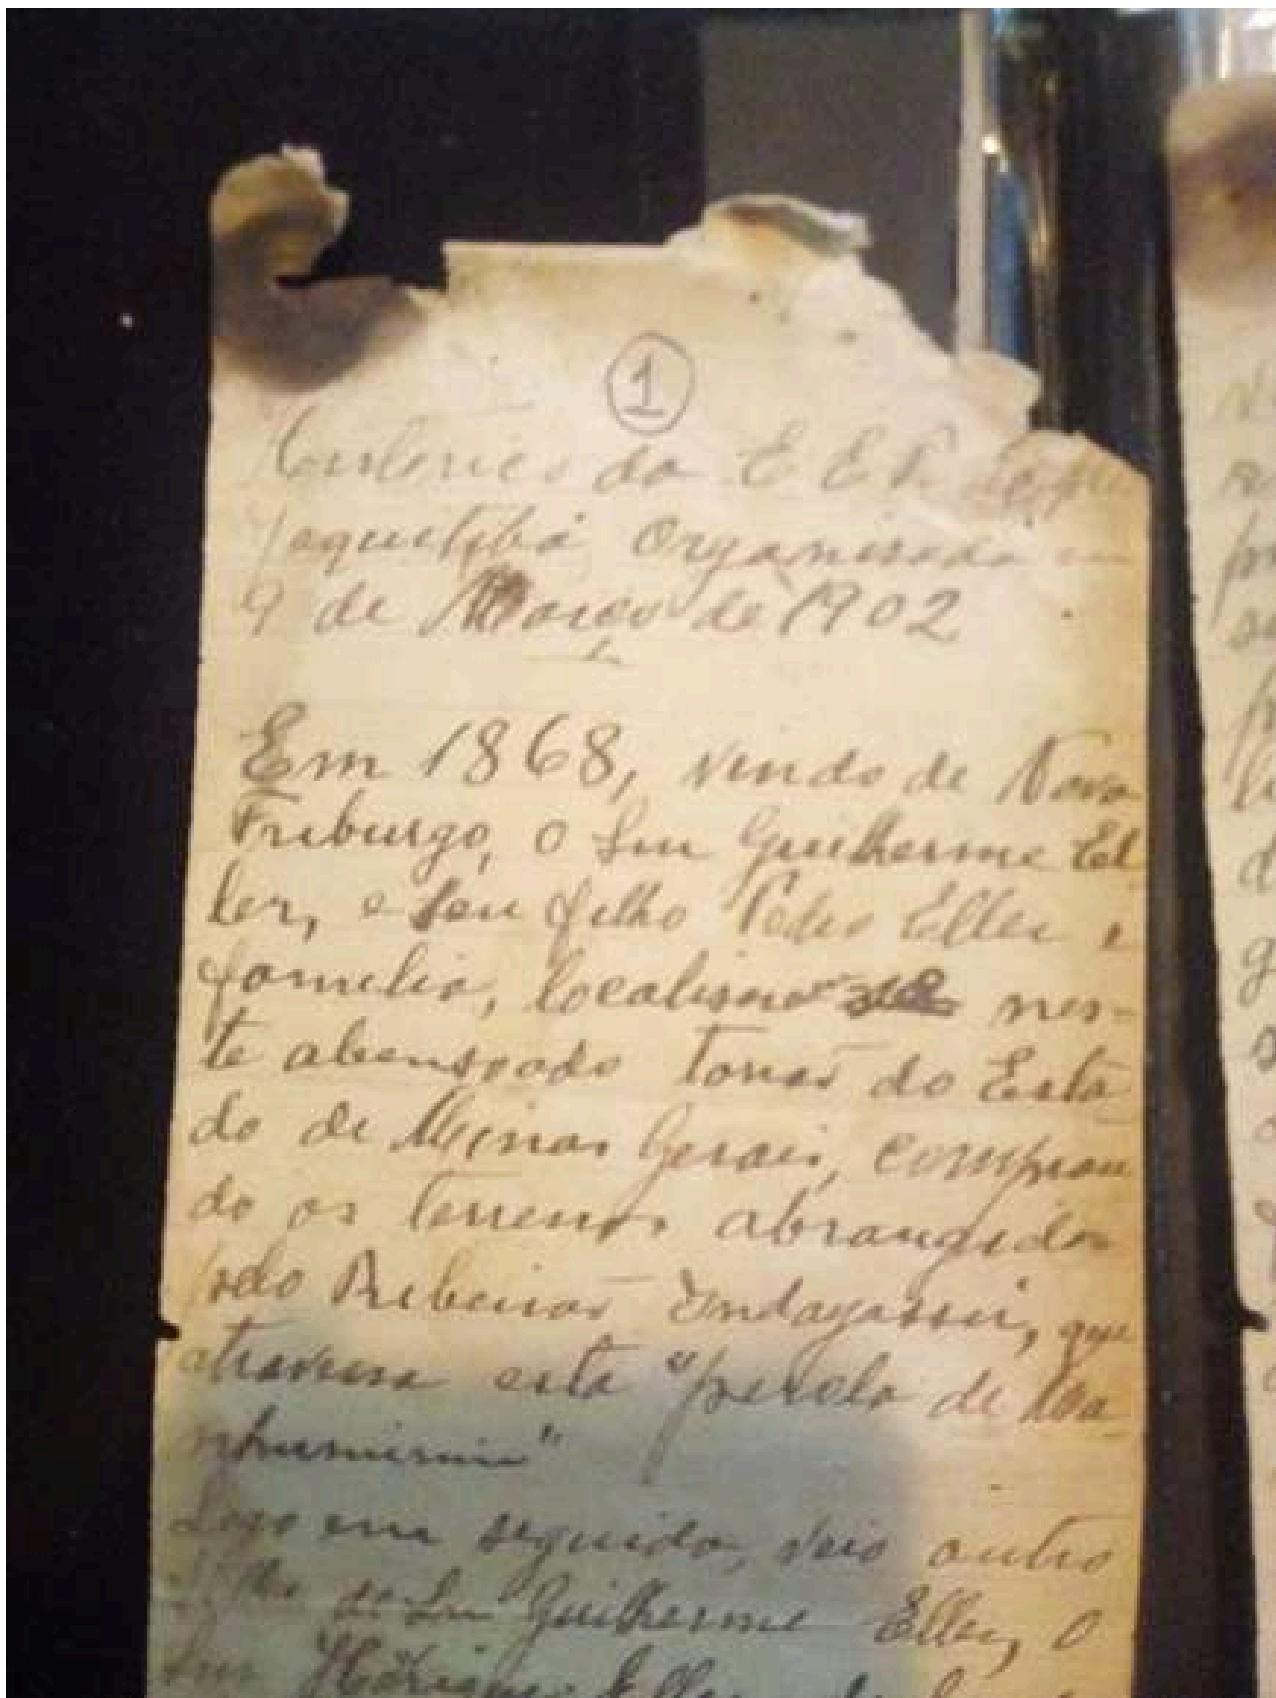 1
da E E P. de
Jequitibá, Organisada em
9 de Março de 1902
Em 1868, vindo de Nova
Friburgo, o Snr Guilherme El-
ler, e seu filho Pedro Eller e
familia, localisou nes-
te abensoado torrão do Esta
do de Minas Gerais, compran
do os terrenos abrangidos
pelo Ribeirão Indayassú, que
atravessa esta "perola de Ma
nhumirim"
Logo em seguida, veio outro
filho do Snr Guilherme Eller, o
Snr Eller